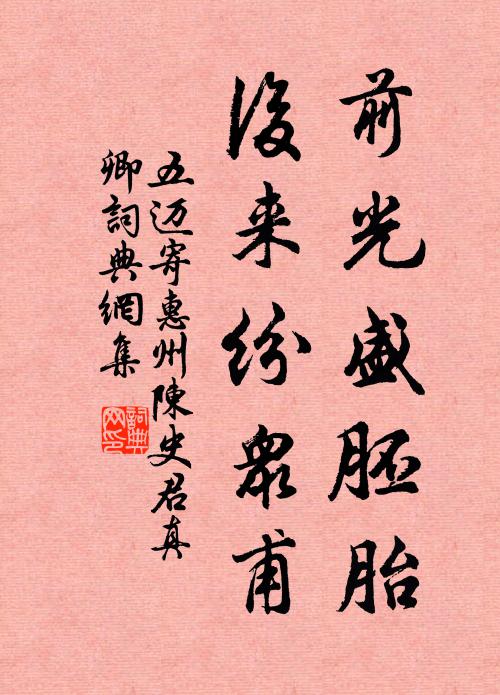 前光盛胚胎
後来紛衆甫
五迈寄惠州陳史君真
卿詞典網集
詞典
网印